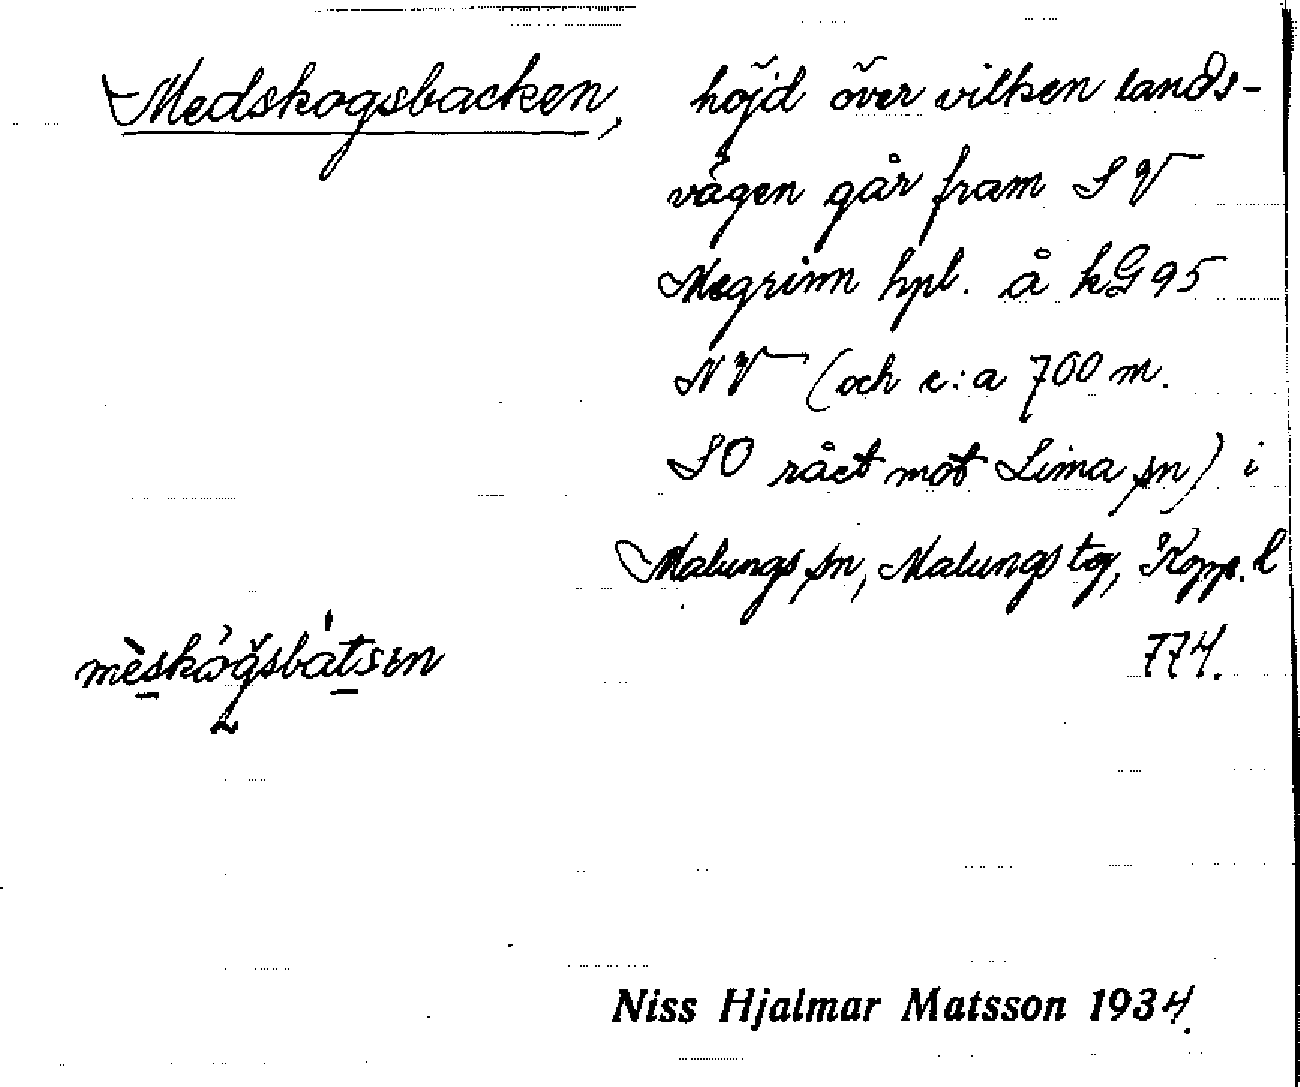 Medskogsbacken, höjd över vilken lands-
vägen går fram SV
Megrinn hpl. å kG 95
NV (och c:a 700 m.
SO råct mot Lima sn) i
Malungs sn, Malungs tg, Kopp. l
774.
Niss Hjalmar Matsson 1934.